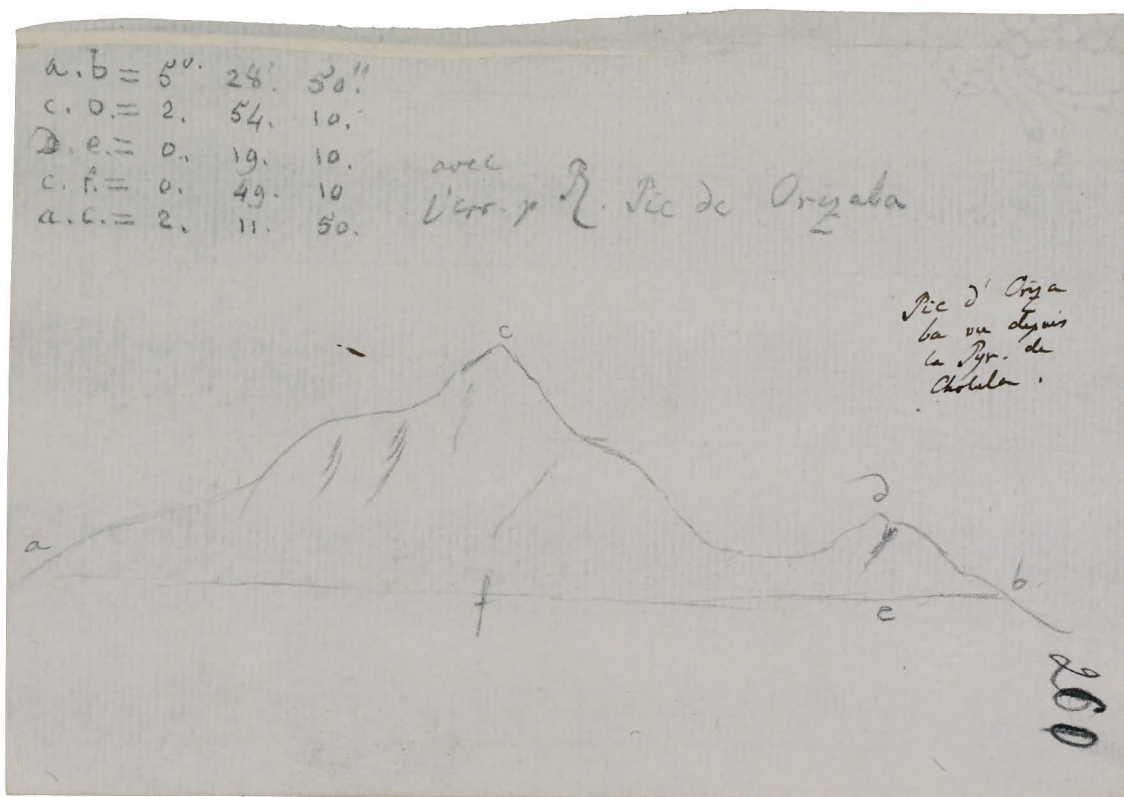 a.b = 5°. 28'. 50''
c. D. = 2. 54. 10.
D. e. = 0. 19. 10.
c. f. = 0. 49. 10
a. c. = 2. 11. 50.
avec
l'err. Pic de Orizaba
Pic d'Oriza
ba vu depuis
la Pyr. de
Cholula.
c
d
a
b
f
e
260